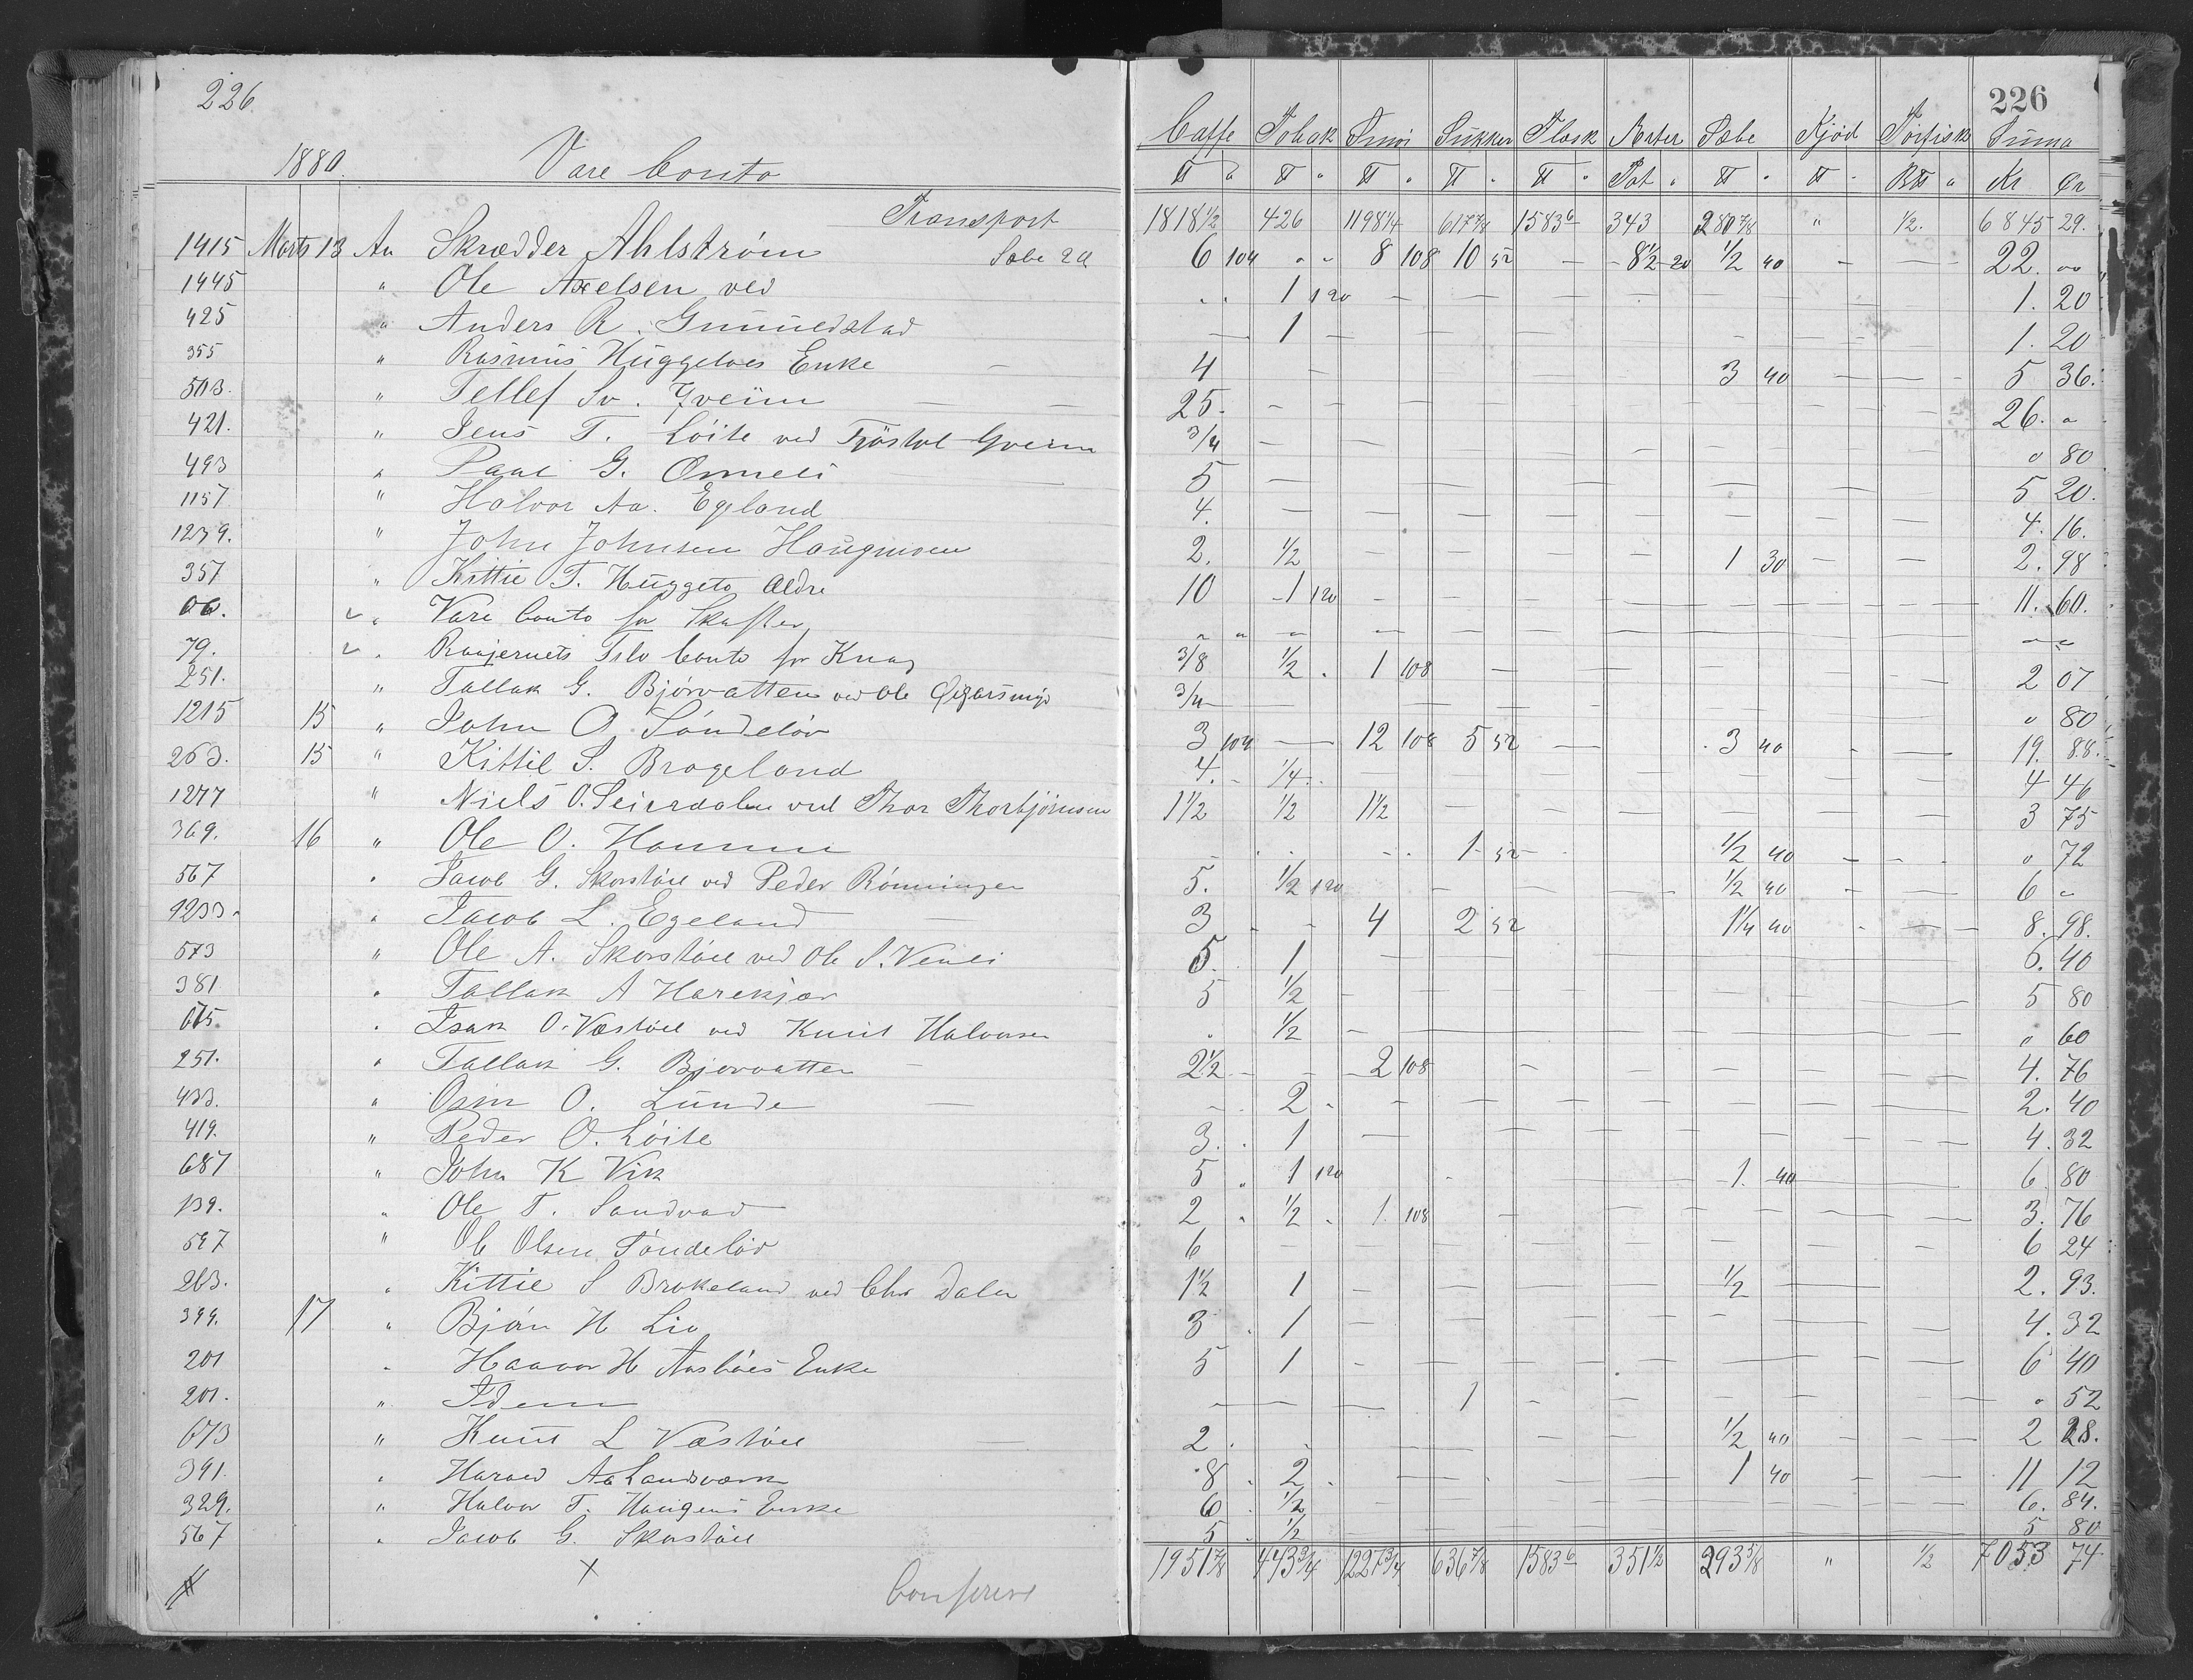 226. 226
1880. Vare Conto Caffe Tobak Smør Sukker Flæsk Erter Sæbe Kjød Törfisk Suma
℔ " ℔ " ℔ " ℔ " ℔ " Pot " ℔ " ℔ " B℔ " Kr Ør
Transport 1818 1/2 426 1198 1/4 617 7/8 1583 6 343 280 7/8 " 1/2. 6845 29.
1415 Marts 13 An Skrædder Ahlström Sæbe 20 6 104 " " 8 108 10 52 — 8 1/2 20 1/2 40 — — 22. "
1445 " Ole Axelsen ved " " 1 120 — — — — — — 1. 20
425 " Anders R. — 1 — — — — — — 1. 20
355 " Rasmus Huggetoes Enke 4 — — — 3 40 — — 5 36.
503. " Tellef Sv. Jveim — — 25. — — — — — — — 26. "
421. " Jens T. Löite ved Tjöstol Gveim 3/4 — — — — — — — " 80
493 " Paal G. Ommeli — 5 — — — — — — — 5 20.
1157 " Halvor Aa. Egeland 4. — — — — — — — 4. 16.
1239. " John Johnsen Haugmoen 2. 1/2 — — — — 1 30 — — 2. 98
357 " Kittil T. Huggeto Ældre 10 1 120 — — — — — — 11. 60.
60. " Vare Conto for Skafter " " " — — — — — — — "
79. " Raajernets Tilv Conto for Knag 3/8 1/2 " 1 108 — — — — — 2 07
251. " Tallak G. Bjørvatten ved Ole 3/4 — — — — — — — " 80
1215 15 " John O. Söndeløv 3 104 — 12 108 5 52 — 3 40 — — 19. 88.
263. 15 " Kittil S. Brogeland 4. 1/4 — — — — — — 4 46
1277 " Niels O. Seirsdalen ved Thor Thorbjörnsen 1 1/2 1/2 1 1/2 — — — — — — 3 75
369. 16 " Ole O. Hommen — — — 1 52 1/2 40 — — " 72
567 " Jacob G. Skorstöll ved Peder Rönningen 5. 1/2 120 — — — — 1/2 40 — — 6 "
1233. " Jacob L. Egeland — 3 " " 4 2 52 1 1/4 40 — — 8. 98.
573 " Ole A. Skorstöll ved Ole S. Venli 5. 1 — — — — — — 6. 40
381 " Tallak A Harekjær 5 1/2 — — — — — — 5 80
615. " Isak O. Væstöll ved Knut Halvorsen " 1/2 — — — — — — " 60
251. " Tallak G. Bjorvatten — 2 1/2 — — 2 108 — — — — 4. 76
433. " Osm O. Lunde — — 2 " — — — — — — 2. 40
419. " Peder O. Löite 3. 1 — — — — — — 4. 32
687 " John K Vik 5 " 1 120 — 1. 40 6. 80
139. " Ole T. Sandvad 2 " 1/2 " 1. 108 — — — — — 3. 76
597 " Ole Olsen Söndeløv 6 — — — — — — — 6 24
263. " Kittil S Brokeland ved Chr Dalen 1 1/2 1 — — — — 1/2 — 2. 93.
399. 17 " Bjørn H Lio 3 " 1 — — — — — — 4. 32
201 " Haavor H Aasböes Enke 5 1 — — — — — — 6 40
201. " Idem — — — 1 — — — — — " 52
673 " Knut L Væstöll — 2 " " — — — 1/2 40 — — 2 28.
391. " Harald Aa Landsværk 8 " 2 " — — — 1 40 — — 11 12
329. " Halvor T. Haugens Enke 6 " 1/2 — — — — — — 6. 84.
567 " Jacob G. Skorstöll 5 " 1/2 — — — — — — 5 80
x 1951 7/8 443 3/4 1227 3/4 636 7/8 1583 6 351 1/2 293 5/8 " 1/2 7053 74
Confereret